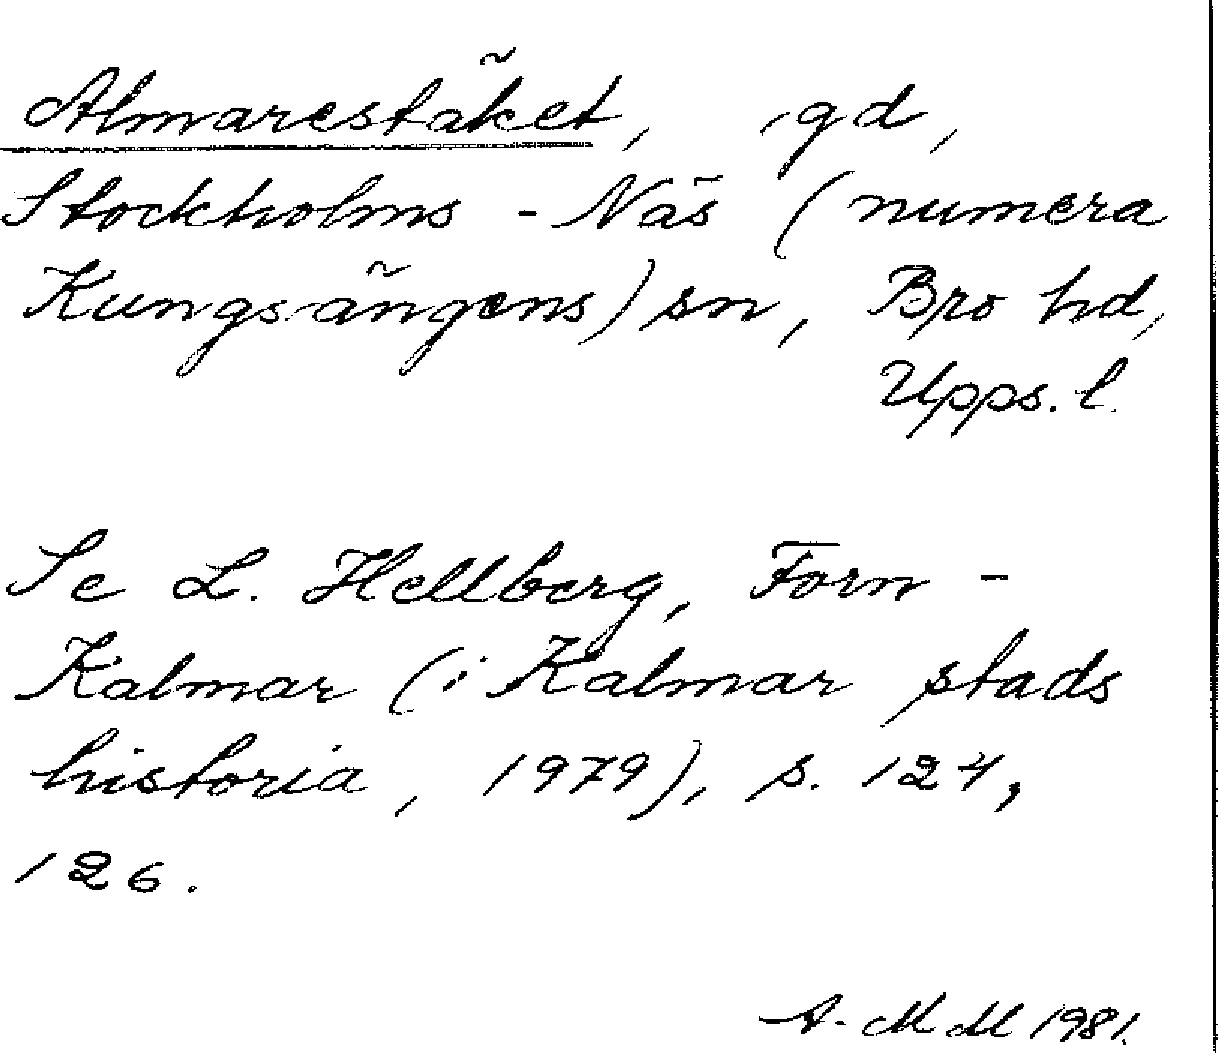 Almarestäket, gd,
Stockholms-Näs (numera
Kungsängens) sn, Bro hd,
Upps. l.
Se L. Hellberg, Forn-
Kalmar (i Kalmar stads
historia, 1979), s. 124,
126.
A-MM 1981.